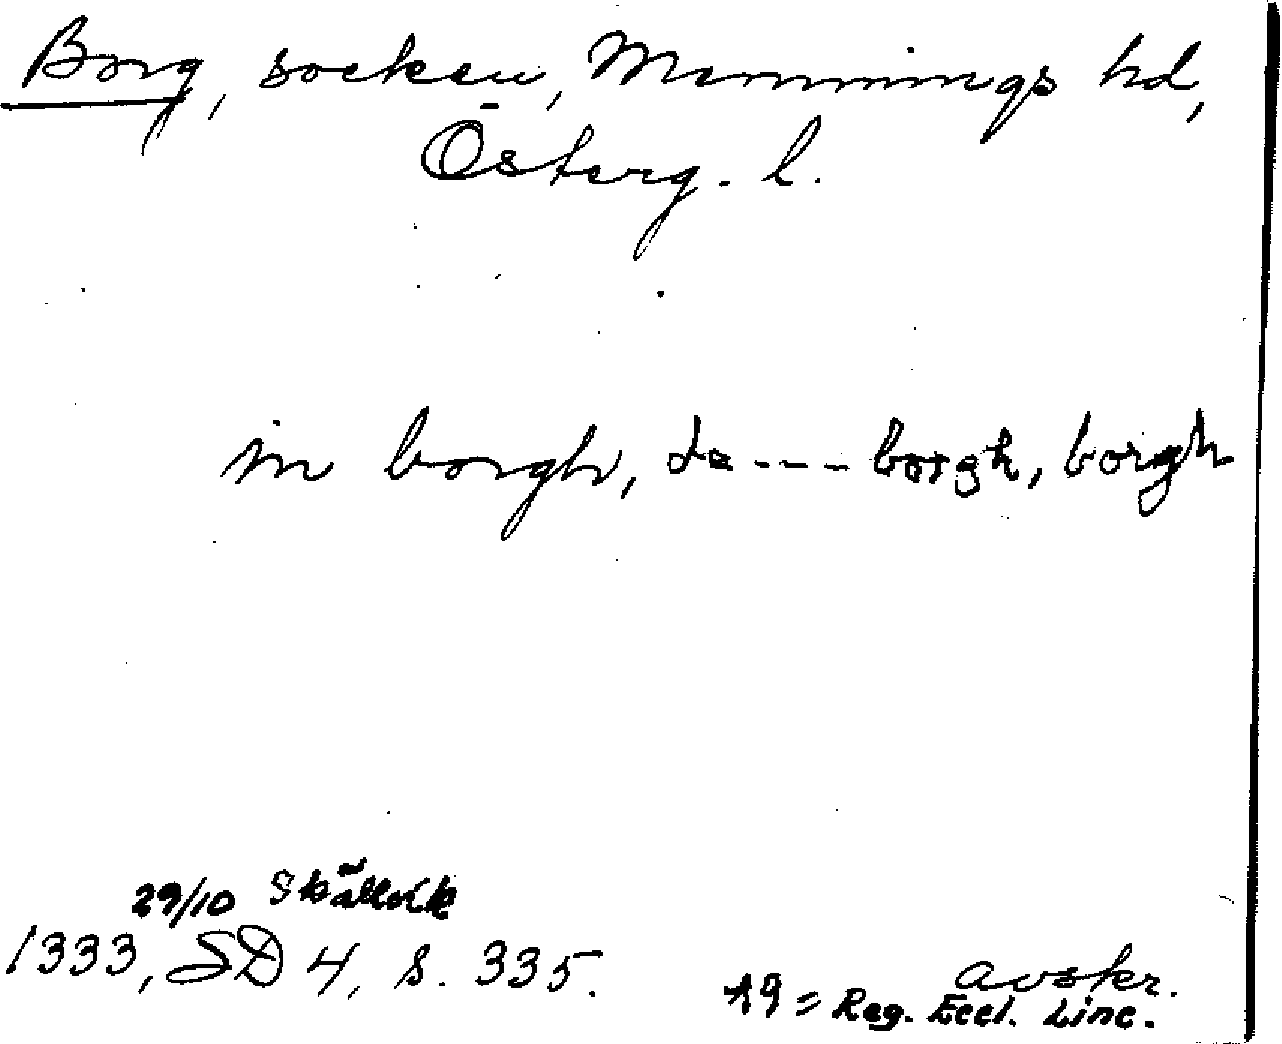 Borg, socken, Memmings hd,
Österg. l.
in borgh, de --- borgh, borgh
29/10 Skällvik
1333, SD 4, s. 335.
avskr.
A9 = Reg. Eccl. Linc.